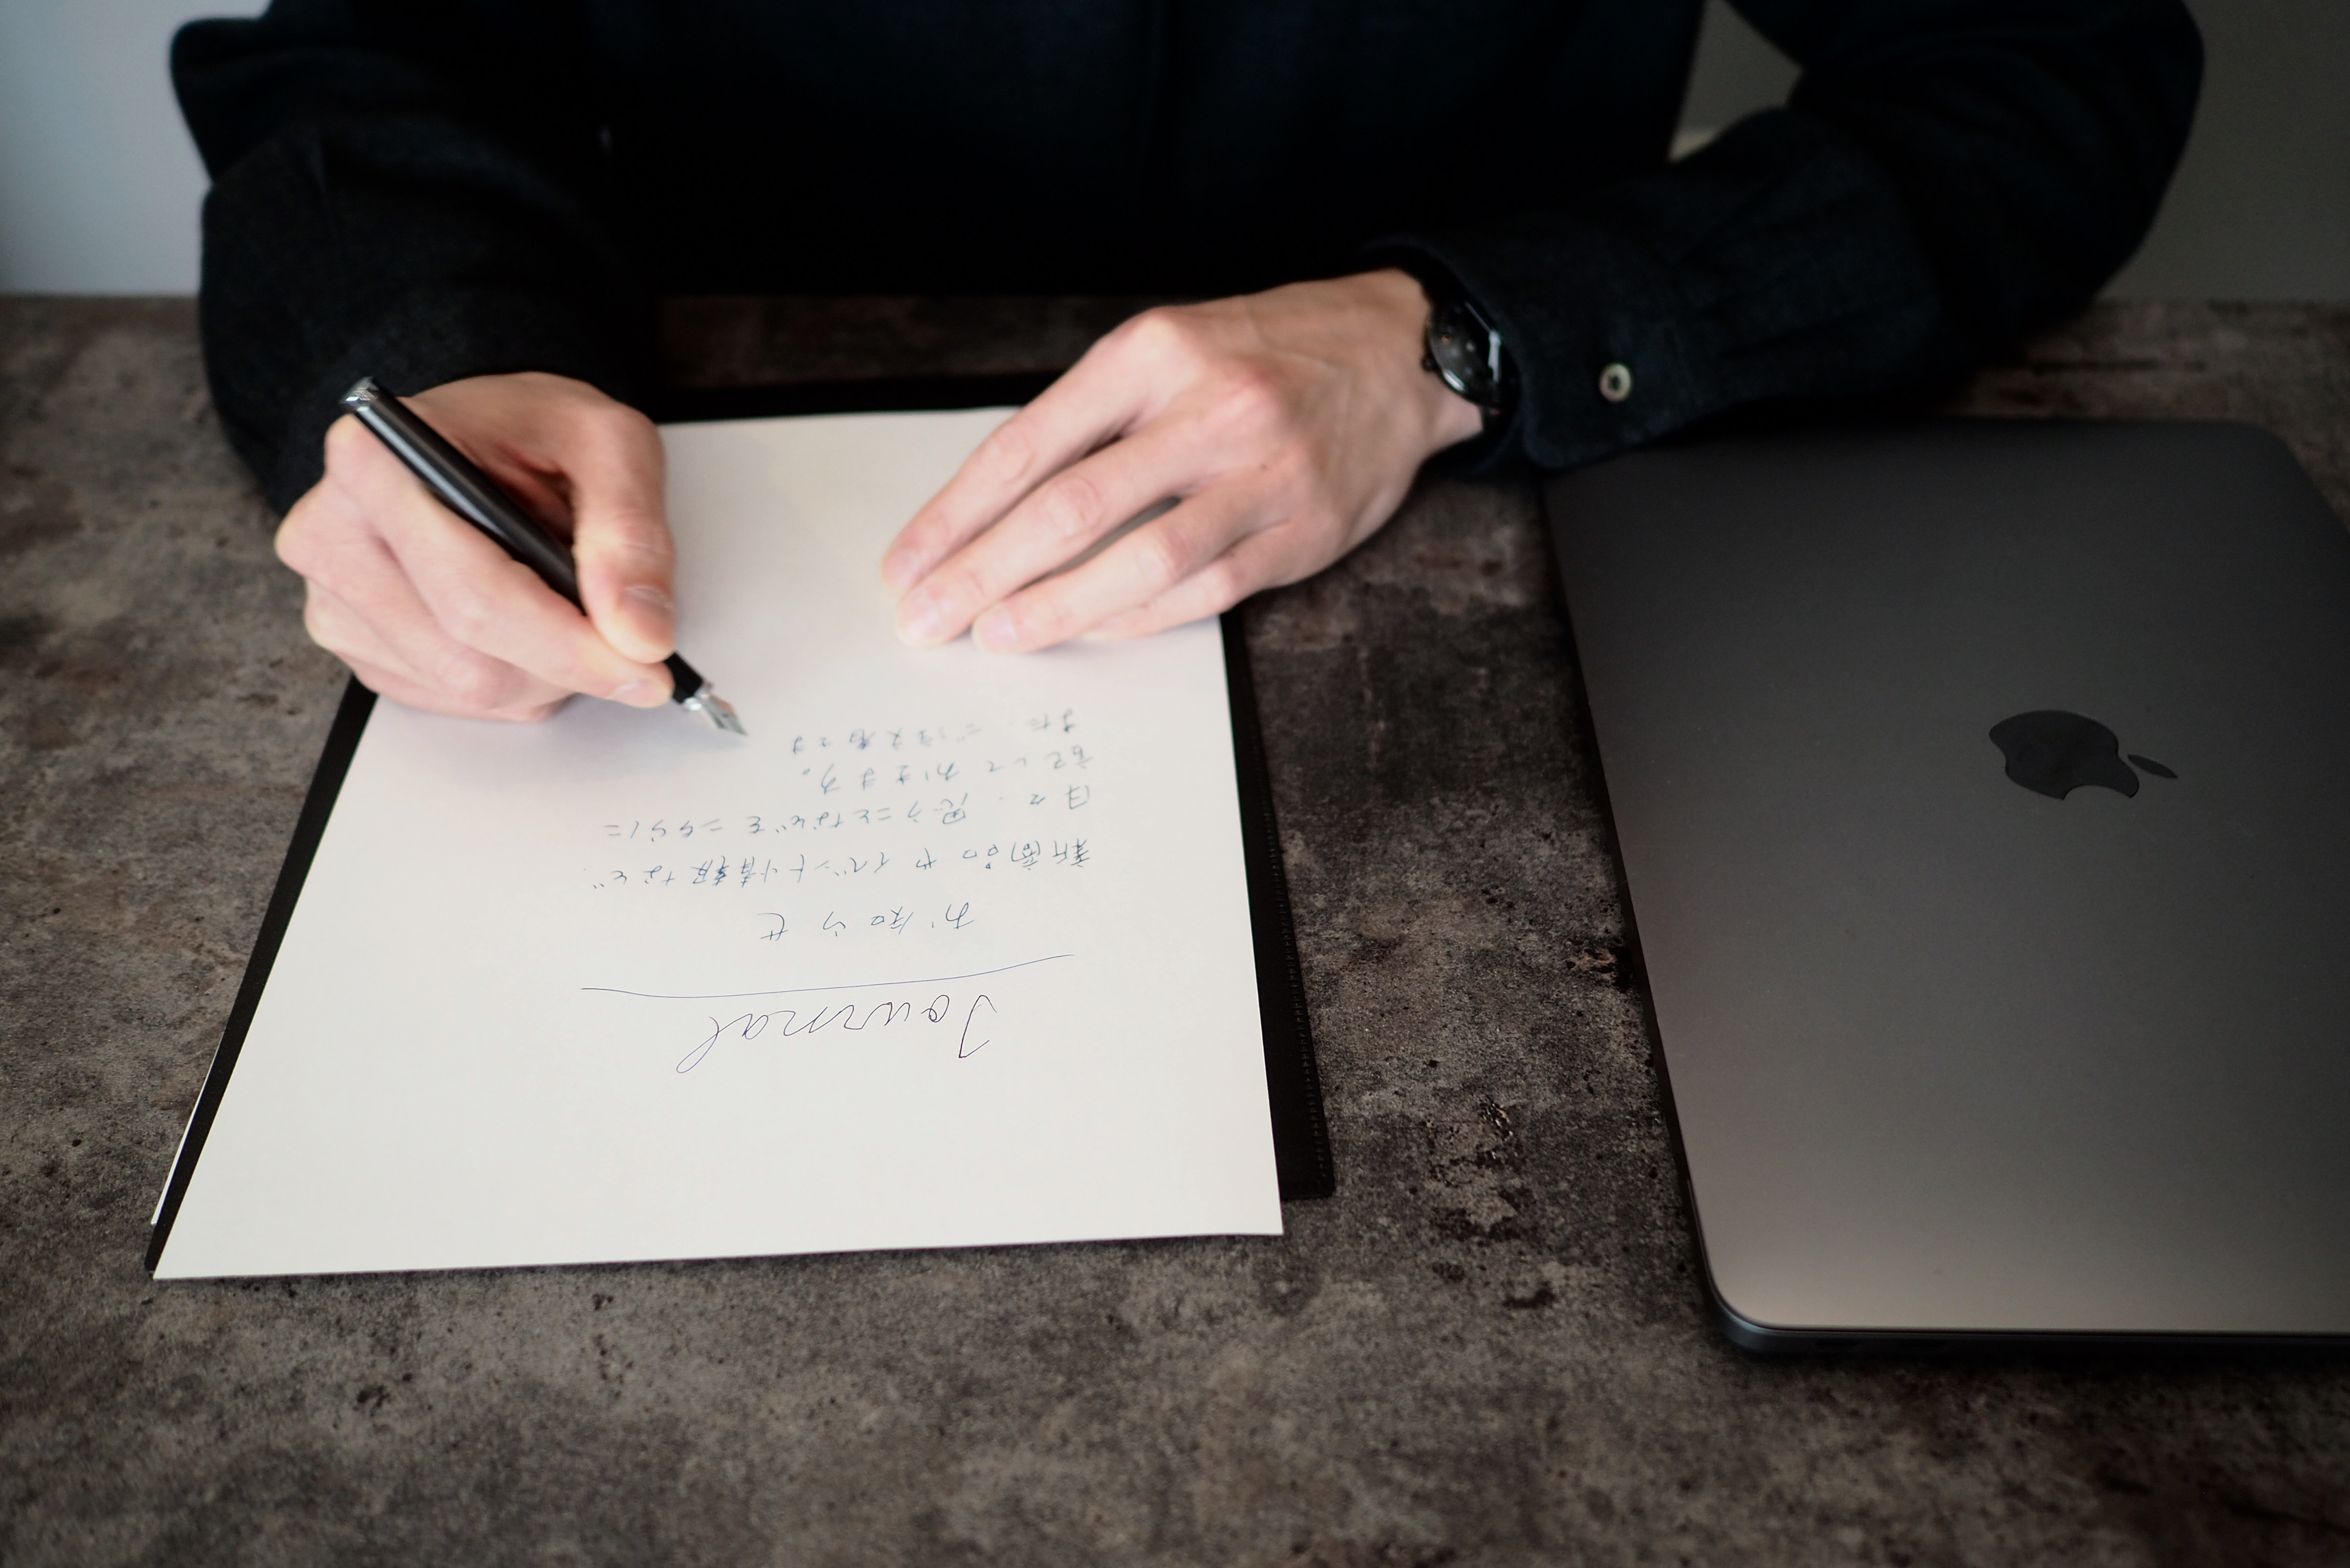 Journal
お知らせ
新商品やイベント情報など
日々、思うことなどをこちらに
記しております。
また、ご注文者さま